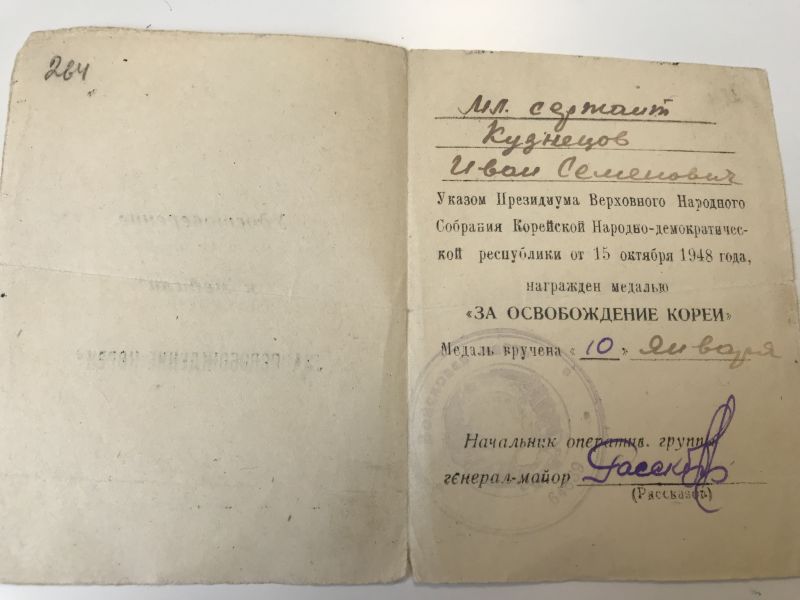 264
Мл. сержант
Кузнецов
Иван Семенович
Указом Президиума Верховного Народного
Собрания Корейской Народно-демократичес-
кой республики от 15 октября 1948 года,
награжден медалью
«ЗА ОСВОБОЖДЕНИЕ КОРЕИ»
Медаль вручена «10» января
Начальник оператив. группы
генерал-майор
(Рассказов)